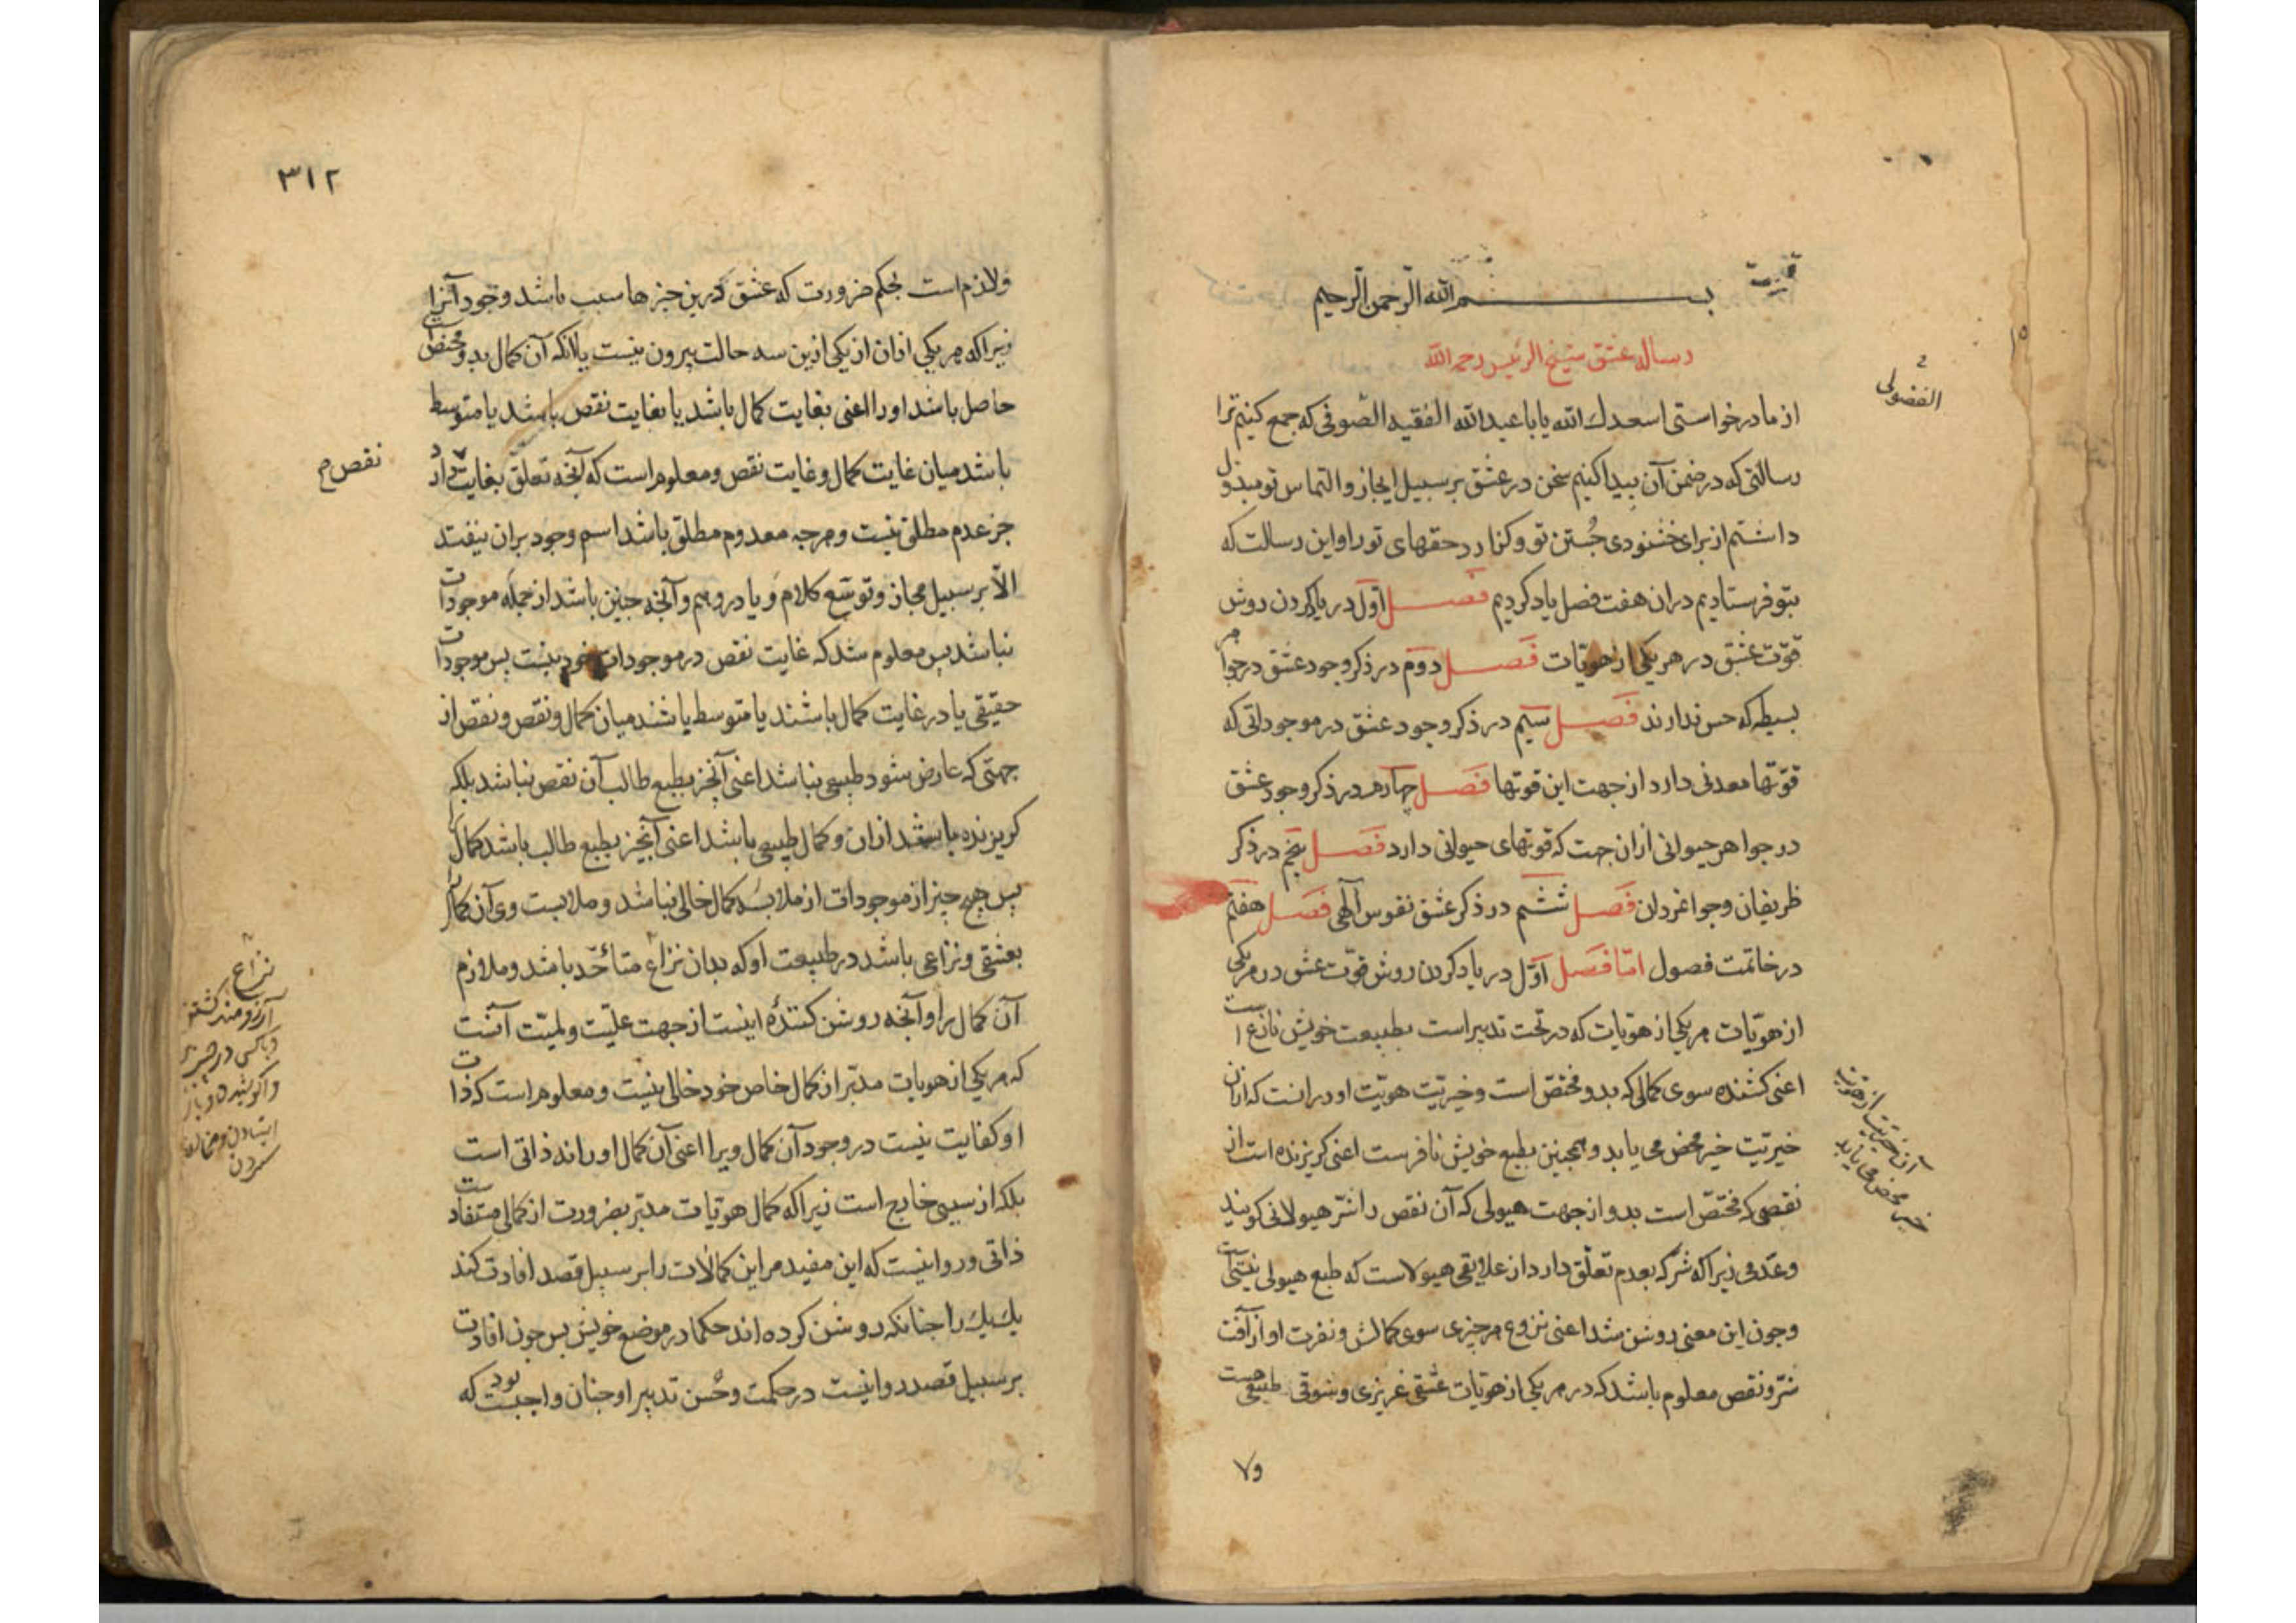 بسم الله الرحمن الرحیم
رساله عشق شیخ الرئیس رحمه الله
از ما درخواستی اسعدک الله یا با عبدالله الفقیه الصوفی که جمع کنیم ترا
الفضولی
رسالتی که در ضمن آن پیدا کنیم سخن در عشق بر سبیل ایجاز و التماس تو مبذول
داشتم از برای خشنودی جُستن تو و کزارد حقهای تو را و این رسالت که
بتو فرستادیم دران هفت فصل یاد کردیم فصل اوّل در یاد کردن روش
قوّت عشق در هر یکی از هویّات فصل دوم در ذکر وجود عشق در جواهر
بسیطه که حس ندارند فصل سیم در ذکر وجود عشق در موجوداتی که
قوّتها معدنی دارد از جهت این قوتها فصل چهارم در ذکر وجود عشق
در جواهر حیوانی ازان جهت که قوتهای حیوانی دارد فصل پنجم در ذکر
ظریفان و جوامردان فصل ششم در ذکر عشق نفوس آلهی فصل هفتم
در خاتمت فصول امّا فصل اوّل در یاد کردن روش قوّت عشق در هر یکی
از هویّات هر یکی از هویّات که در تحت تدبیر است بطبیعت خویش نازع است
اعنی کشنده سوی کمالی که بدو مختصّ است و خیریّت هویّت او در انست که ازان
خیریّت خیر محض می یابد و همچنین بطبع خویش نافرست اعنی کریزنده است از
نقصی که مختصّ است بدو از جهت هیولی که آن نقص را شرّ هیولانی کویند
و عدمی زیرا که شرّ که بعدم تعلّق دارد از علایق هیولاست که طبع هیولی نیستی است
و چون این معنی روشن شد اعنی نزوع هر چیزی سوی کمالش و نفرت او از آفت
شرّ و نقص معلوم باشد که در هر یکی از هویّات عشقی غریزی و شوقی طبیعی هست
ولا
٣١٢
ولازم است بحکم ضرورت که عشق درین چیزها سبب باشد وجود آنرا
زیرا که هر یکی ازان از یکی ازین سه حالت بیرون نیست یا آنکه آن کمال بدو مختص است
حاصل باشد او را اعنی بغایت کمال باشد یا بغایت نقص باشد یا متوسط
باشد میان غایت کمال و غایت نقص و معلوم است که آنچه تعلّق بغایت دارد
نقص م
جز عدم مطلق نیست و هرچه معدوم مطلق باشد اسم وجود بران نیفتد
الّا بر سبیل مجاز و توسّع کلام و یا در وهم و آنچه چنین باشد از جمله موجودات
نباشد پس معلوم شد که غایت نقص در موجودات خود نیست پس موجودات
حقیقی یا در غایت کمال باشند یا متوسط باشند میان کمال و نقص و نقص از
جهتی که عارض شود طبیعی نباشد اعنی آنچیز بطبع طالب آن نقص نباشد بلکه
کریزنده باشد ازان و کمال طبیعی باشد اعنی آنچیز بطبع طالب باشد کمال را
پس هیچ چیز از موجودات از ملابسه کمال خالی نباشد و ملابست وی آن کمال را
بعشقی و نزاعی باشد در طبیعت او که بدان نزاع متاحّد باشد و ملازم
نزاع
آرزومند کشتن
آن کمال را و آنچه روشن کنندهٔ اینست از جهت علیّت و لمیّت آنست
که هر یکی از هویات مدبّر از کمال خاص خود خالی نیست و معلوم است که ذات
او کفایت نیست در وجود آن کمال ویرا اعنی آن کمال او را نه ذاتی است
بلکه از سببی خارج است زیرا که کمال هویّات مدبّر بضرورت از کمالی مستفادست
ذاتی و روا نیست که این مفید مر این کمالات را بر سبیل قصد افادت کند
یک یک را چنانکه روشن کرده اند حکما در موضع خویش پس چون افادت
بر سبیل قصد روا نیست در حکمت و حُسن تدبیر او چنان واجب بود که